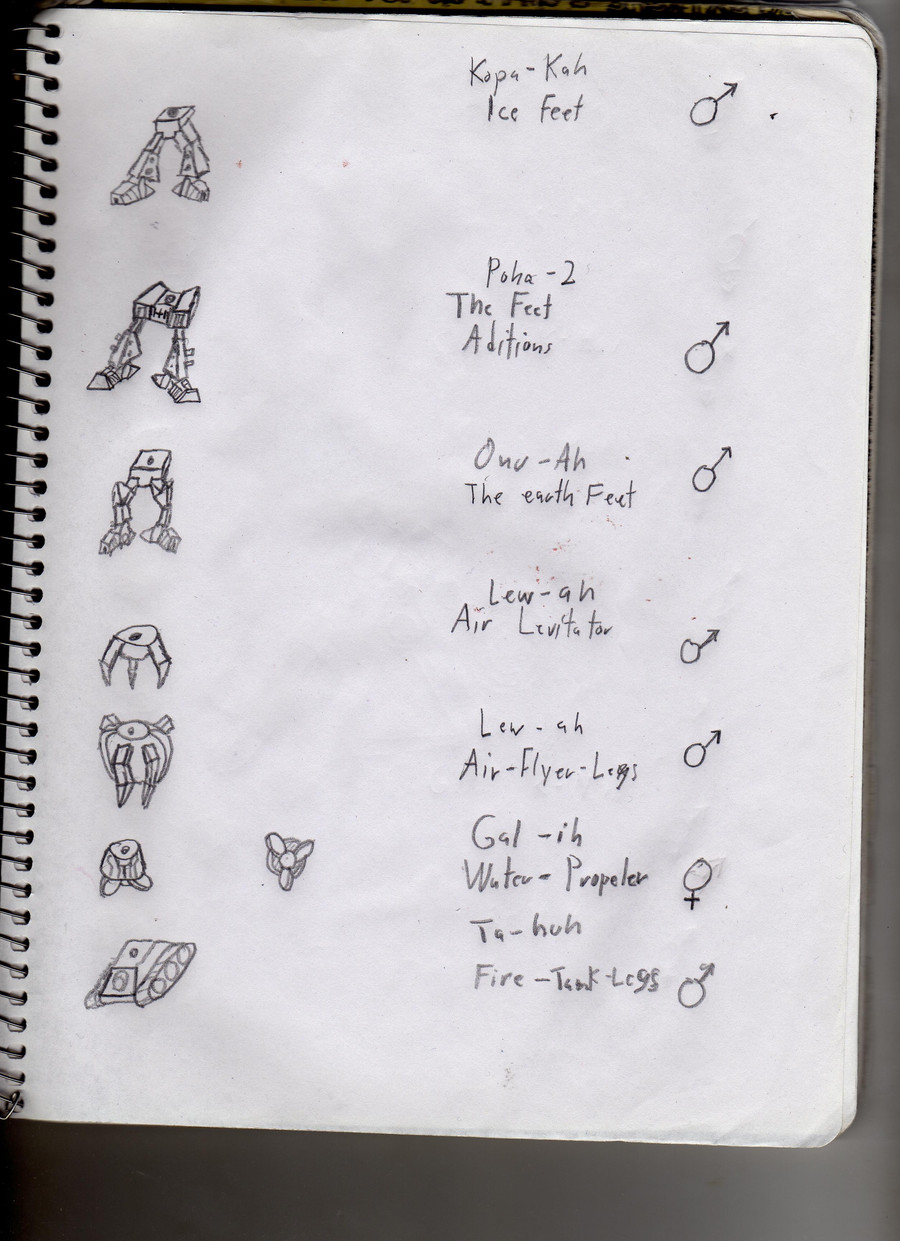 Kopa-Kah
Ice Feet
Poha-2
The Feet
Aditions
Onu-Ah
The earth Feet
Lew-ah
Air Levitator
Lew-ah
Air-Flyer-Legs
Gal-ih
Water-Propeler
Ta-huh
Fire-Tank-Legs